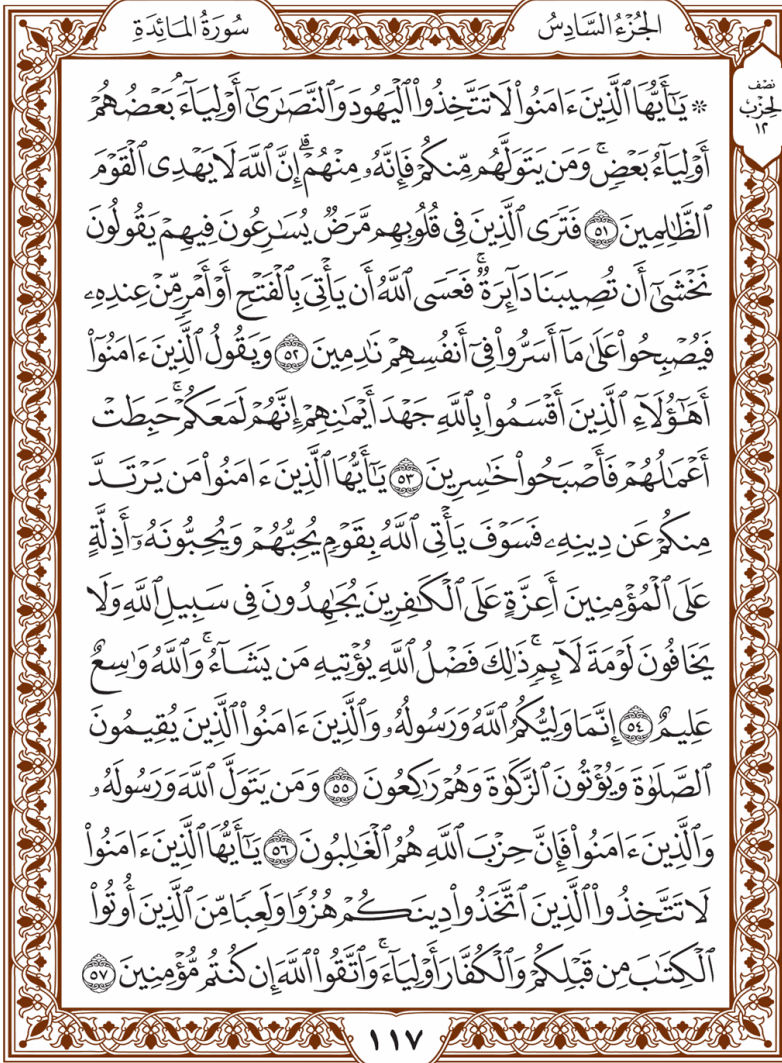 الجُزْءُ السَّادِسُ
سُورَةُ المَائِدَةِ
نِصْفُ
الحِزْبِ
١٢
۞ يَٰٓأَيُّهَا ٱلَّذِينَ ءَامَنُوا۟ لَا تَتَّخِذُوا۟ ٱلْيَهُودَ وَٱلنَّصَٰرَىٰٓ أَوْلِيَآءَ ۘ بَعْضُهُمْ
أَوْلِيَآءُ بَعْضٍ ۚ وَمَن يَتَوَلَّهُم مِّنكُمْ فَإِنَّهُۥ مِنْهُمْ ۗ إِنَّ ٱللَّهَ لَا يَهْدِى ٱلْقَوْمَ
ٱلظَّٰلِمِينَ ٥١ فَتَرَى ٱلَّذِينَ فِى قُلُوبِهِم مَّرَضٌ يُسَٰرِعُونَ فِيهِمْ يَقُولُونَ
نَخْشَىٰٓ أَن تُصِيبَنَا دَآئِرَةٌ ۚ فَعَسَى ٱللَّهُ أَن يَأْتِىَ بِٱلْفَتْحِ أَوْ أَمْرٍ مِّنْ عِندِهِۦ
فَيُصْبِحُوا۟ عَلَىٰ مَآ أَسَرُّوا۟ فِىٓ أَنفُسِهِمْ نَٰدِمِينَ ٥٢ وَيَقُولُ ٱلَّذِينَ ءَامَنُوٓا۟
أَهَٰٓؤُلَآءِ ٱلَّذِينَ أَقْسَمُوا۟ بِٱللَّهِ جَهْدَ أَيْمَٰنِهِمْ إِنَّهُمْ لَمَعَكُمْ ۚ حَبِطَتْ
أَعْمَٰلُهُمْ فَأَصْبَحُوا۟ خَٰسِرِينَ ٥٣ يَٰٓأَيُّهَا ٱلَّذِينَ ءَامَنُوا۟ مَن يَرْتَدَّ
مِنكُمْ عَن دِينِهِۦ فَسَوْفَ يَأْتِى ٱللَّهُ بِقَوْمٍ يُحِبُّهُمْ وَيُحِبُّونَهُۥٓ أَذِلَّةٍ
عَلَى ٱلْمُؤْمِنِينَ أَعِزَّةٍ عَلَى ٱلْكَٰفِرِينَ يُجَٰهِدُونَ فِى سَبِيلِ ٱللَّهِ وَلَا
يَخَافُونَ لَوْمَةَ لَآئِمٍ ۚ ذَٰلِكَ فَضْلُ ٱللَّهِ يُؤْتِيهِ مَن يَشَآءُ ۚ وَٱللَّهُ وَٰسِعٌ
عَلِيمٌ ٥٤ إِنَّمَا وَلِيُّكُمُ ٱللَّهُ وَرَسُولُهُۥ وَٱلَّذِينَ ءَامَنُوا۟ ٱلَّذِينَ يُقِيمُونَ
ٱلصَّلَوٰةَ وَيُؤْتُونَ ٱلزَّكَوٰةَ وَهُمْ رَٰكِعُونَ ٥٥ وَمَن يَتَوَلَّ ٱللَّهَ وَرَسُولَهُۥ
وَٱلَّذِينَ ءَامَنُوا۟ فَإِنَّ حِزْبَ ٱللَّهِ هُمُ ٱلْغَٰلِبُونَ ٥٦ يَٰٓأَيُّهَا ٱلَّذِينَ ءَامَنُوا۟
لَا تَتَّخِذُوا۟ ٱلَّذِينَ ٱتَّخَذُوا۟ دِينَكُمْ هُزُوًا وَلَعِبًا مِّنَ ٱلَّذِينَ أُوتُوا۟
ٱلْكِتَٰبَ مِن قَبْلِكُمْ وَٱلْكُفَّارَ أَوْلِيَآءَ ۚ وَٱتَّقُوا۟ ٱللَّهَ إِن كُنتُم مُّؤْمِنِينَ ٥٧
١١٧